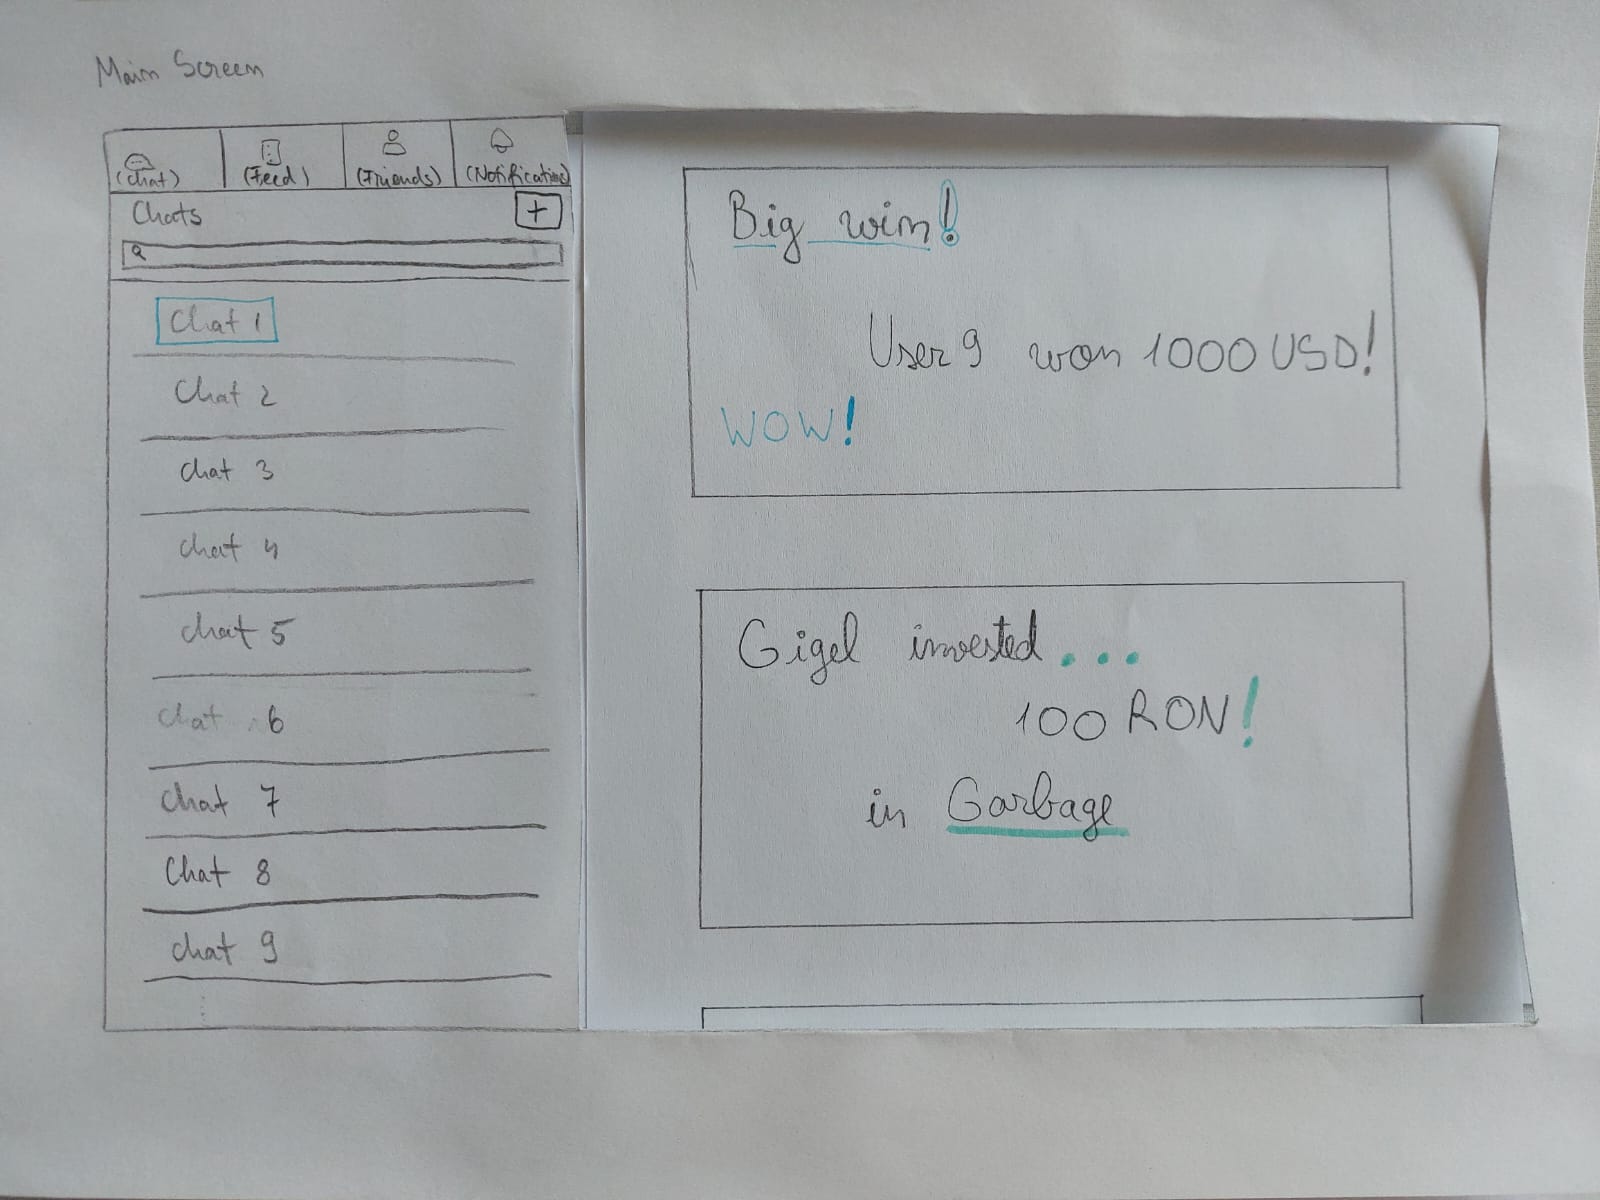 Main Screen
(Chat) (Feed) (Friends) (Notifications)
Chats +
Chat 1
Chat 2
chat 3
chat 4
chat 5
chat 6
chat 7
Chat 8
chat 9
Big win!
User 9 won 1000 USD!
WOW!
Gigel invested...
100 RON!
in Garbage